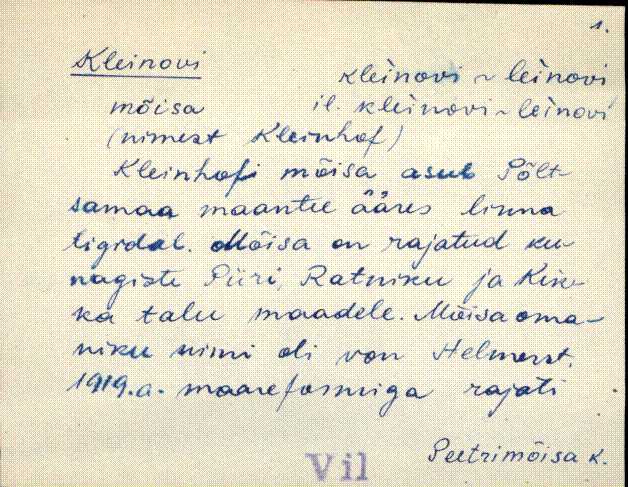 1.
Kleinovi kleìnovi ~ leìnovi
mõisa il. kleìnovi ~ leìnovi
(nimest Kleinhof)
Kleinhofi mõisa asub Põlt-
samaa maantee ääres linna
ligidal. Mõisa on rajatud ku-
nagiste Piiri, Ratniku ja Kik-
ka talu maadele. Mõisa oma-
niku nimi oli von Helmerst.
1919.a. maareformiga rajati
Peetrimõisa k.
Vil